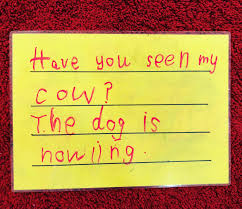 Have you seen my
cow?
The dog is
howling.